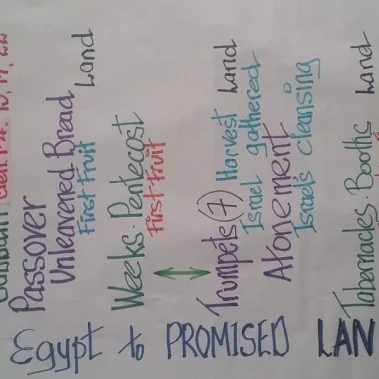 Passover
Unleavened Bread Land
First Fruit
Weeks · Pentecost
First Fruit
Trumpets (7) Harvest Land
Israel gathered
Atonement
Israel's cleansing
Tabernacles · Booths Land
Egypt to PROMISED LAN